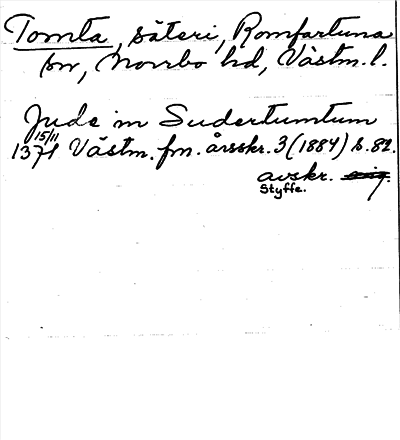 Tomta, säteri, Romfartuna
sn, Norrbo hd, Västm. l.
Jude in Sudertumtum
15/11
1371 Västm. fm. årsskr. 3 (1884) s. 82.
avskr.
Styffe.